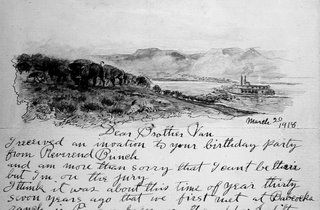 March 20
1918
Dear Brother Van
I received an invation to your birthday party
from Reverend Bunch
and am more than sorry that I cant be thair
but I'm on the jury
I think it was about this time of year thirty
seven years ago that we first met at Babcocks
ranch in